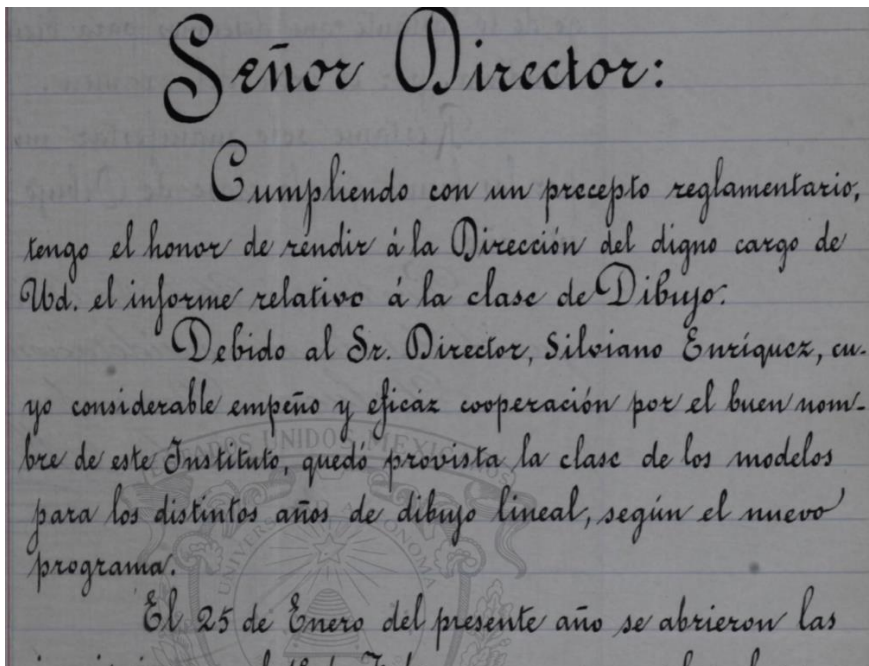 Señor Director:
Cumpliendo con un precepto reglamentario,
tengo el honor de rendir á la Dirección del digno cargo de
Ud. el informe relativo á la clase de Dibujo.
Debido al Sr. Director, Silviano Enríquez, cu-
yo considerable empeño y eficáz cooperación por el buen nom-
bre de este Instituto, quedó provista la clase de los modelos
para los distintos años de dibujo lineal, según el nuevo
programa.
El 25 de Enero del presente año se abrieron las